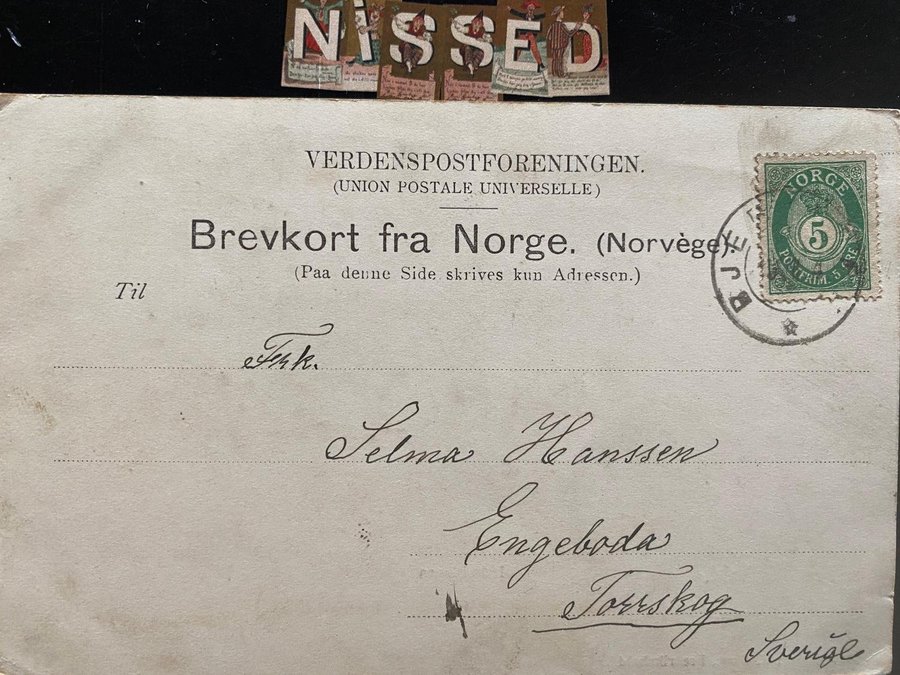 NiSSED
VERDENSPOSTFORENINGEN.
(UNION POSTALE UNIVERSELLE)
Brevkort fra Norge. (Norvège).
(Paa denne Side skrives kun Adressen.)
NORGE
5
POSTFRIM. 5 ØRE
BJE
Til
Frk.
Selma Hanssen
Engeboda
Torrskog
Sverige